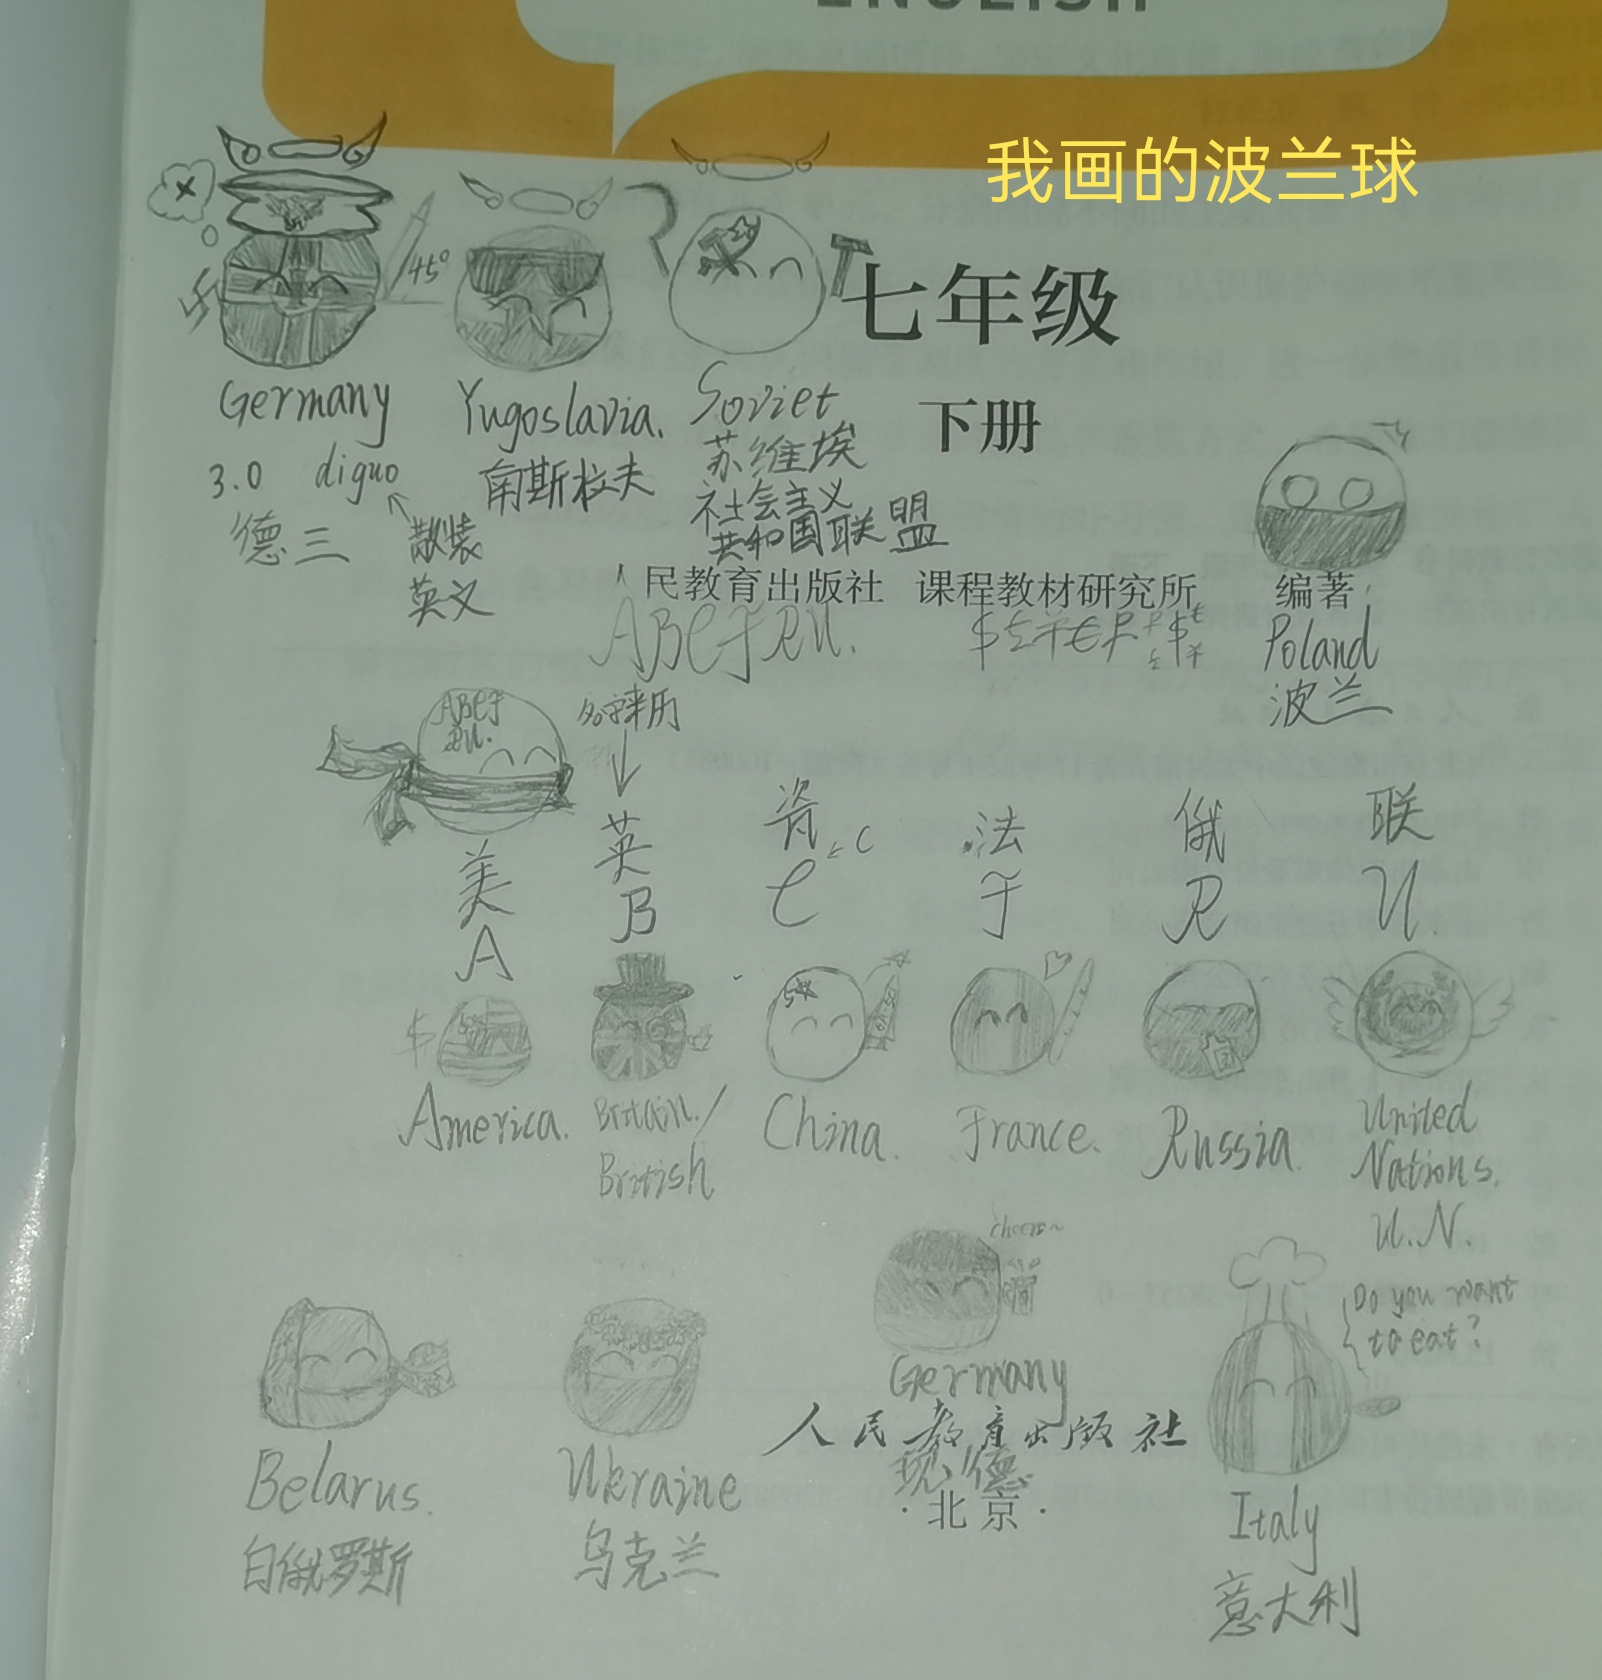 ENGLISH
我画的波兰球
45°
七年级
下册
Germany
Yugoslavia.
Soviet
3.0 diguo
南斯拉夫
苏维埃
社会主义
共和国联盟
德三
散装
英义
人民教育出版社 课程教材研究所 编著
ABCFRU.
Poland
波兰
ABCF
RU.
名字来历
美
英
瓷
法
俄
联
A
B
C
F
R
U.
$
America.
Britain./
British
China.
France.
Russia.
United
Nations.
U.N.
cheers~
Do you want
to eat?
Germany
现德
人民教育出版社
·北京·
Belarus.
白俄罗斯
Ukraine
乌克兰
Italy
意大利